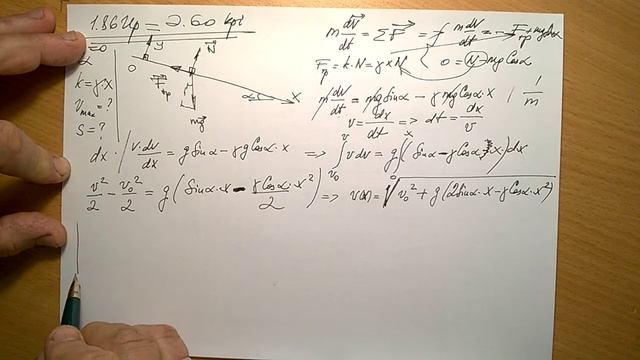 1.86 Ир = 2.60 Крі
=0
α
k = γ·x
v max = ?
s = ?
y
N
O
F тр
mg
α
x
m dv/dt = ΣF =>
m dv/dt = -F тр + mg sinα
F тр = k·N = γx N
0 = N - mg cosα
m dv/dt = mg sinα - γ mg cosα·x | 1/m
v = dx/dt => dt = dx/v
dx· | v·dv/dx = g sinα - γ g cosα·x => ∫ v dv = g ∫ (sinα - γ cosα·x) dx
v²/2 - v₀²/2 = g (sinα·x - γ cosα/2 · x²) => v(x) = √ v₀² + g(2 sinα·x - γ cosα·x²)